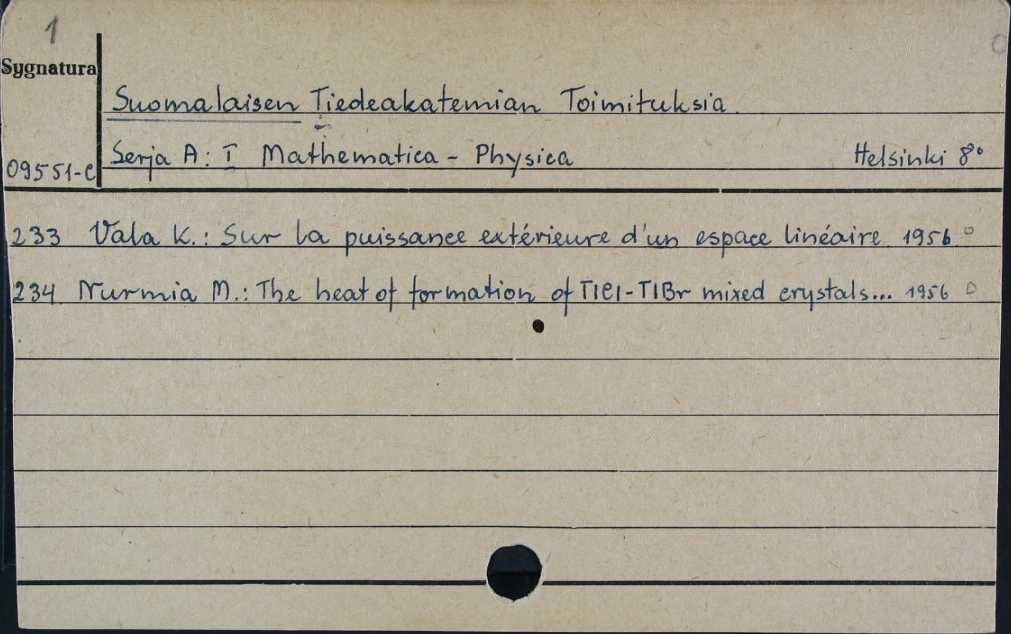 1
Sygnatura
Suomalaisen Tiedeakatemian Toimituksia.
09551-C
Serja A: I Mathematica - Physica Helsinki 8°
233 Vala K.: Sur la puissance extérieure d'un espace linéaire 1956
234 Nurmia M.: The heat of formation of TlCl-TlBr mixed crystals... 1956